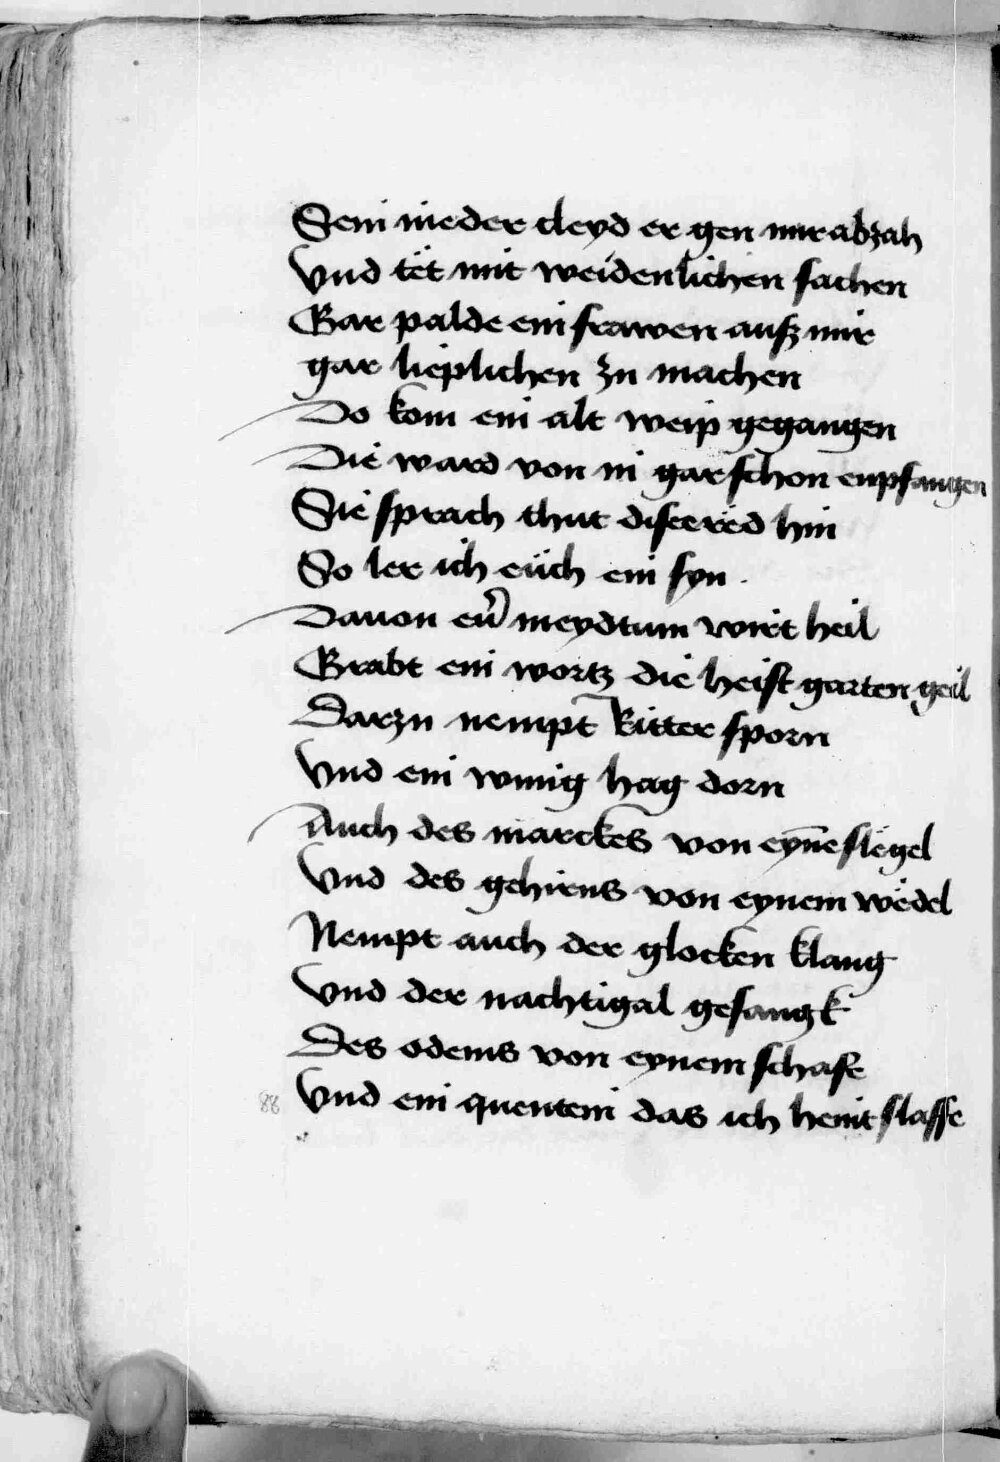 Sein nieder cleyd er gen mir abzah
Vnd tët mit weidenlichen sachen
Gar palde ein frawen ausz mir
gar lieplichen zu machen
Do kom ein alt weip gegangen
Die ward von in gar schon enpfangen
Sie sprach thut dise rëd hin
So ler ich eüch ein syn
Dauon eur̃ meydtum wirt heil
Grabt ein wortz die heist garten geil
Darzu nempt Ritter sporn
Vnd ein winig hag dorn
Auch des marckes von eyne͂ slegel
Vnd des gehirns von eynem wëdel
Nempt auch der glocken klang
Vnd der nachtigal gesangk
Des odems von eynem schafe
88 Vnd ein quentein das ich heint slaffe